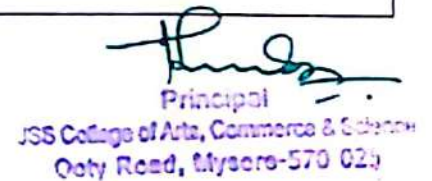 Principal
JSS College of Arts, Commerce & Science
Ooty Road, Mysore-570 025